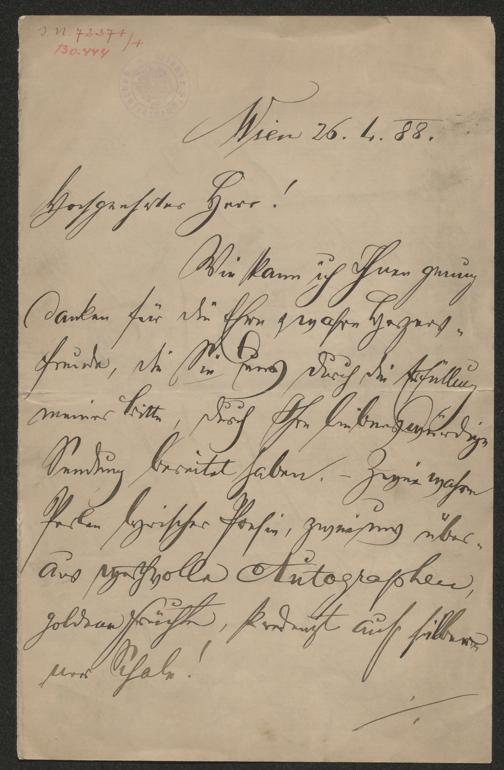 J. N. 7237+/+
130.444
Wien 26. 4. 88.
Hochgeehrter Herr!
Wie kann ich Ihnen genug
danken für die Ehre u wahre Herzens-
freude, die Sie uns durch die Erfüllung
meiner Bitte, durch Ihre liebenswürdige
Sendung bereitet haben. – Zwei wahre
Perlen lyrischer Poesie, zwei uns über-
aus werthvolle Autographen,
goldene Früchte, kredenzt auf silber-
ner Schale!
./.